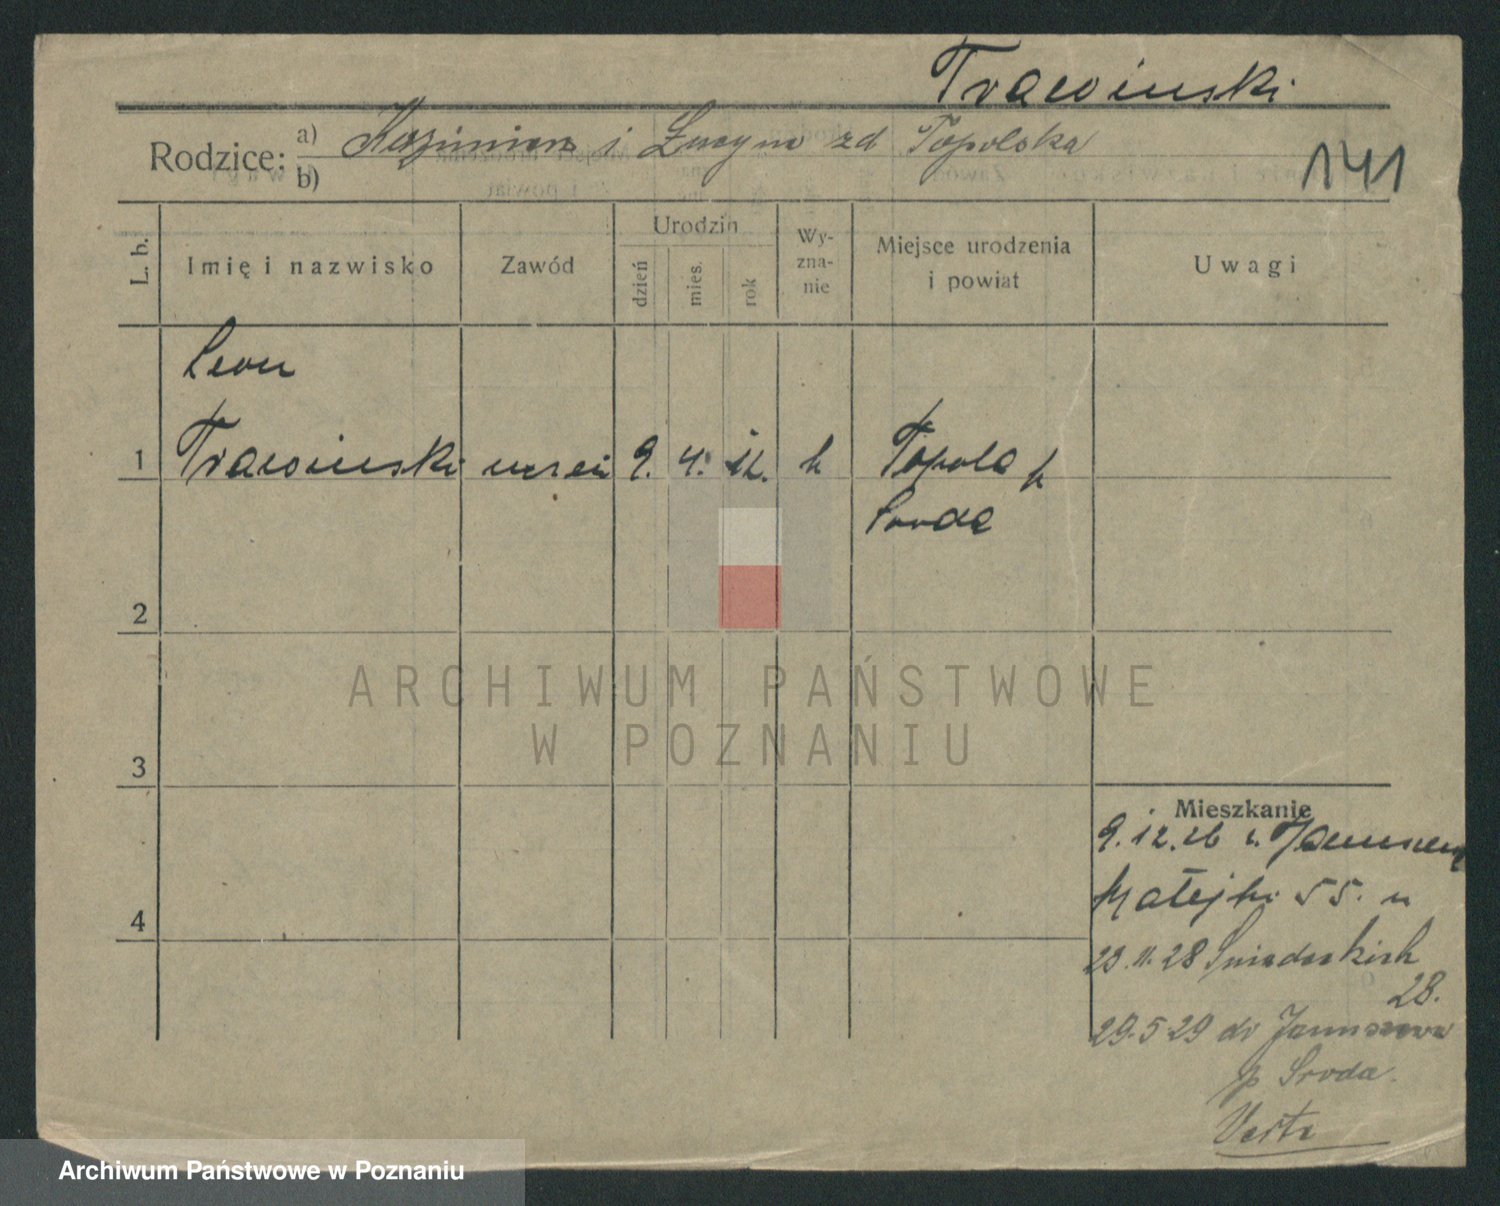 Trawinski
Rodzice: a) Kazimierz i Lucyna zd Topolska
b)
141
L. b.
Imię i nazwisko
Zawód
Urodzin
dzień
mies.
rok
Wy-
zna-
nie
Miejsce urodzenia
i powiat
Uwagi
Leon
1 Trawinski uczeń 9. 4. 12. k Topola p
Sroda
2
3
4
Mieszkanie
9.12.26 z
Matejki 55.
23.11.28 Śniadeckich
28.
29.5.29 do Januszewa
p Sroda.
ARCHIWUM PAŃSTWOWE
W POZNANIU
Archiwum Państwowe w Poznaniu